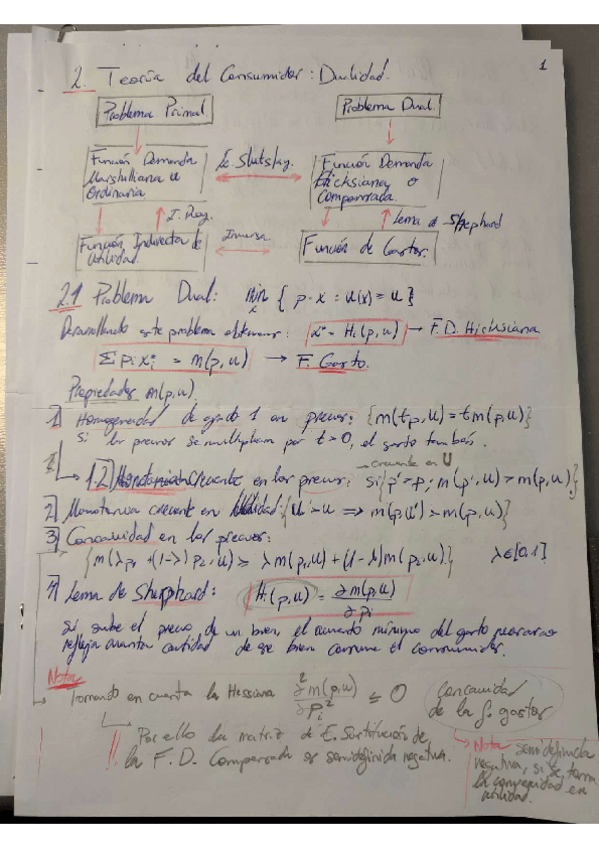 1
2. Teoría del Consumidor: Dualidad.
Problema Primal
Problema Dual.
Función Demanda
Marshalliana u
Ordinaria
Ec Slutsky.
Función Demanda
Hicksiana o
Compensada.
I. Roy.
Lema de Shephard
Función Indirecta de
utilidad.
Inversa
Función de Gastos.
2.1 Problema Dual: Min x { p·x : u(x) = u }
Desarrollando este problema obtenemos: xi* = Hi(p,u) → F.D. Hicksiana
Σ pi xi* = m(p,u) → F. Gasto.
Propiedades m(p,u).
1) Homogeneidad de grado 1 en precios: {m(tp,u) = t m(p,u)}
Si los precios se multiplican por t>0, el gasto también.
→ creciente en U
1.2) Monotona creciente en los precios: si {p' > p; m(p',u) > m(p,u).}
2) Monotona creciente en utilidad: {u' > u ⇒ m(p,u') > m(p,u)}
3) Concavidad en los precios:
{m(λp1 + (1-λ)p2, u) ≥ λm(p1,u) + (1-λ)m(p2,u)} λ∈[0,1]
4) Lema de Shepphard: Hi(p,u) = ∂m(p,u) / ∂pi
Si sube el precio de un bien, el aumento mínimo del gasto necesario
refleja cuanta cantidad de ese bien consume el consumidor.
Nota
Tomando en cuenta la Hessiana ∂²m(p,u) / ∂pi² ≤ 0
Concavidad
de la f. gastos
Por ello la matriz de E. Sustitución de
la F.D. Compensada es semidefinida negativa.
Nota semidefinida
negativa, si se toma
la convexidad en
utilidad.